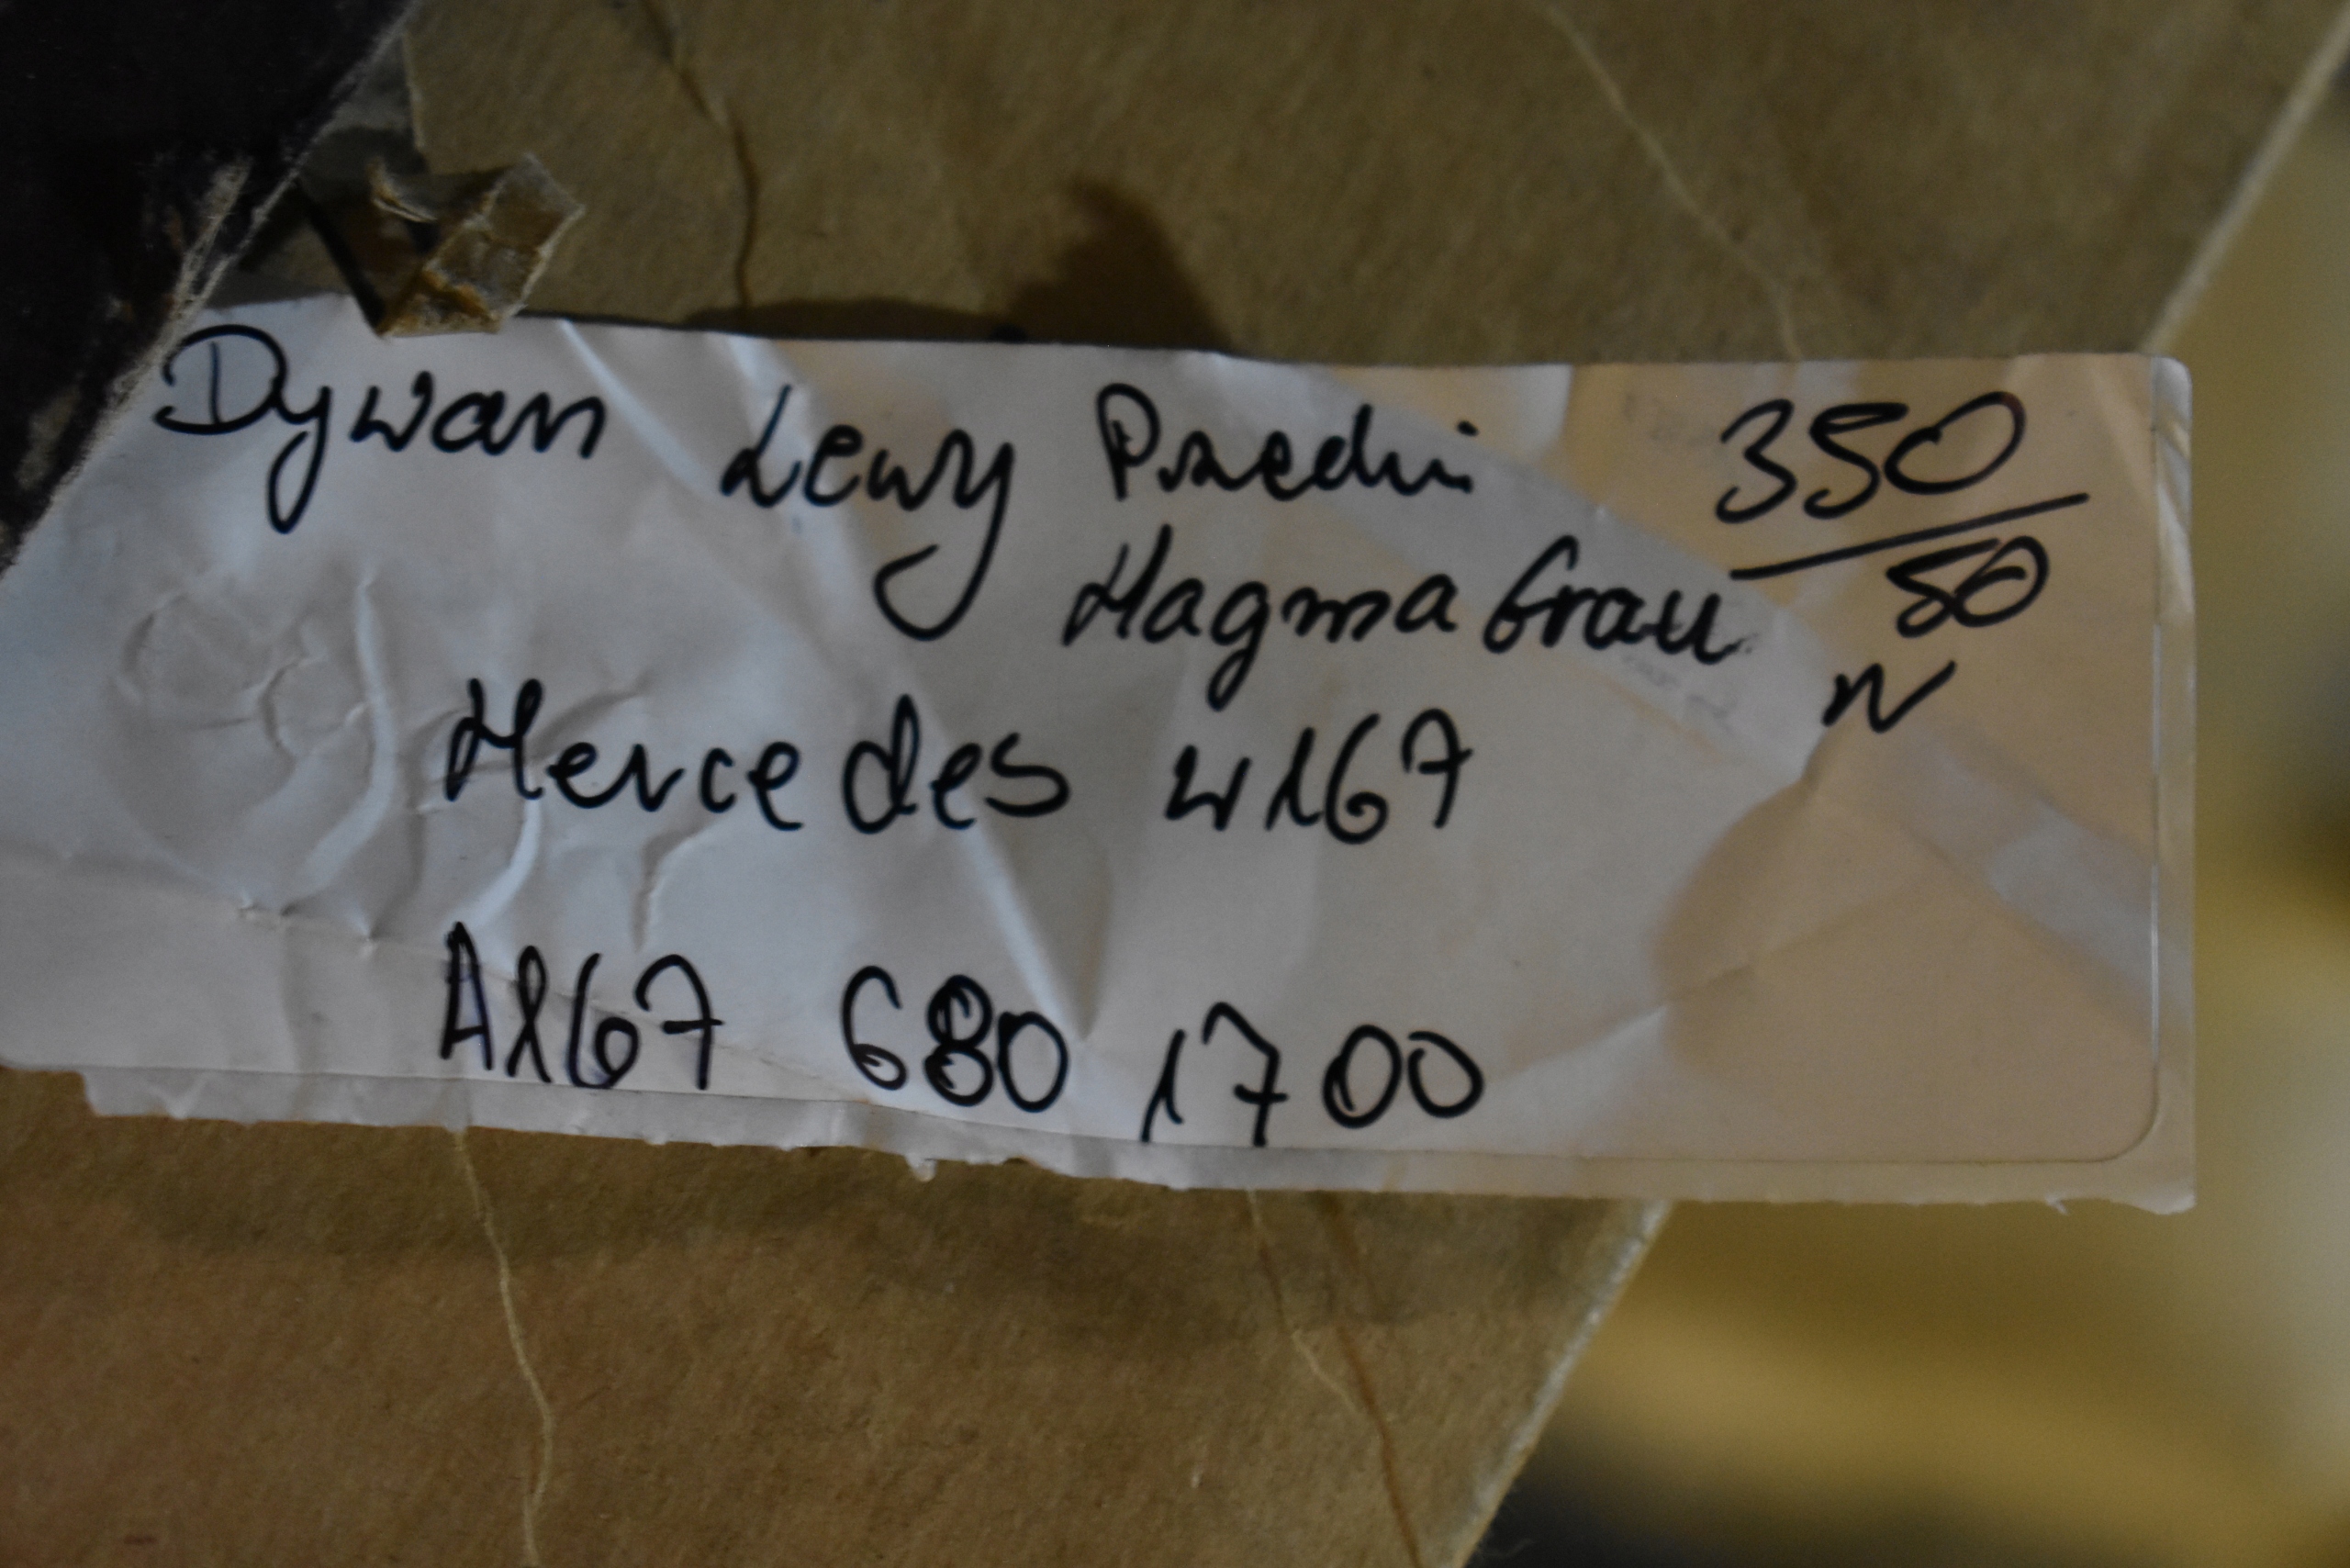 Dywan Lewy Przedni 350/50
Magma Grau N
Mercedes W167
A167 680 1700